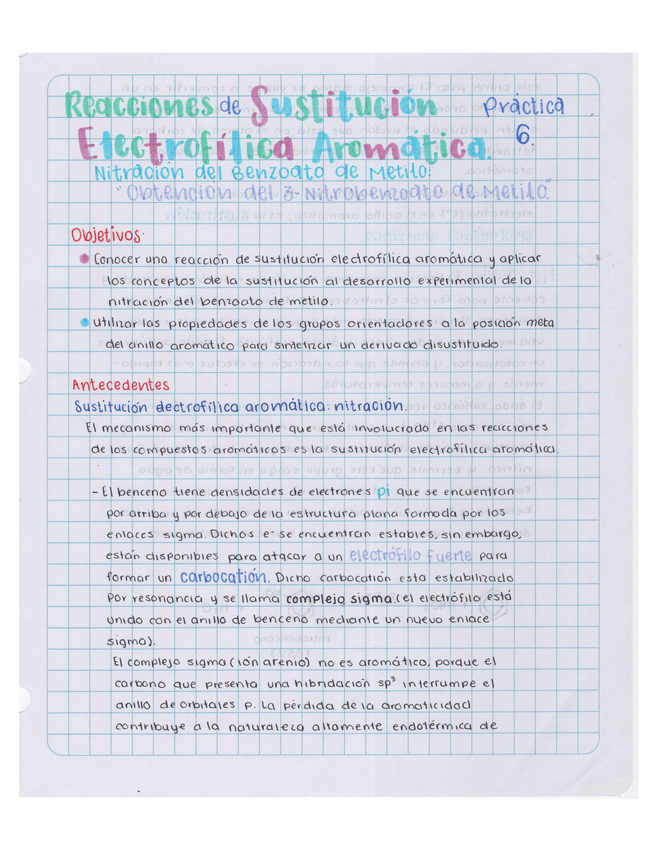 Reacciones de Sustitución Práctica
Electrofílica Aromática. 6.
Nitración del Benzoato de Metilo:
"Obtención del 3-Nitrobenzoato de Metilo"
Objetivos.
Conocer una reacción de sustitución electrofílica aromática y aplicar
los conceptos de la sustitución al desarrollo experimental de la
nitración del benzoato de metilo.
Utilizar las propiedades de los grupos orientadores a la posición meta
del anillo aromático para sintetizar un derivado disustituido
Antecedentes
Sustitución electrofílica aromática: nitración.
El mecanismo más importante que está involucrado en las reacciones
de los compuestos aromáticos es la sustitución electrofílica aromática.
- El benceno tiene densidades de electrones pi que se encuentran
por arriba y por debajo de la estructura plana formada por los
enlaces sigma. Dichos e⁻ se encuentran estables, sin embargo,
están disponibles para atacar a un electrófilo fuerte para
formar un carbocatión. Dicho carbocatión esta estabilizado
por resonancia y se llama complejo sigma. (el electrófilo está
unido con el anillo de benceno mediante un nuevo enlace
sigma).
El complejo sigma (ión arenio) no es aromático, porque el
carbono que presenta una hibridación sp³ interrumpe el
anillo de orbitales p. La pérdida de la aromaticidad
contribuye a la naturaleza altamente endotérmica de